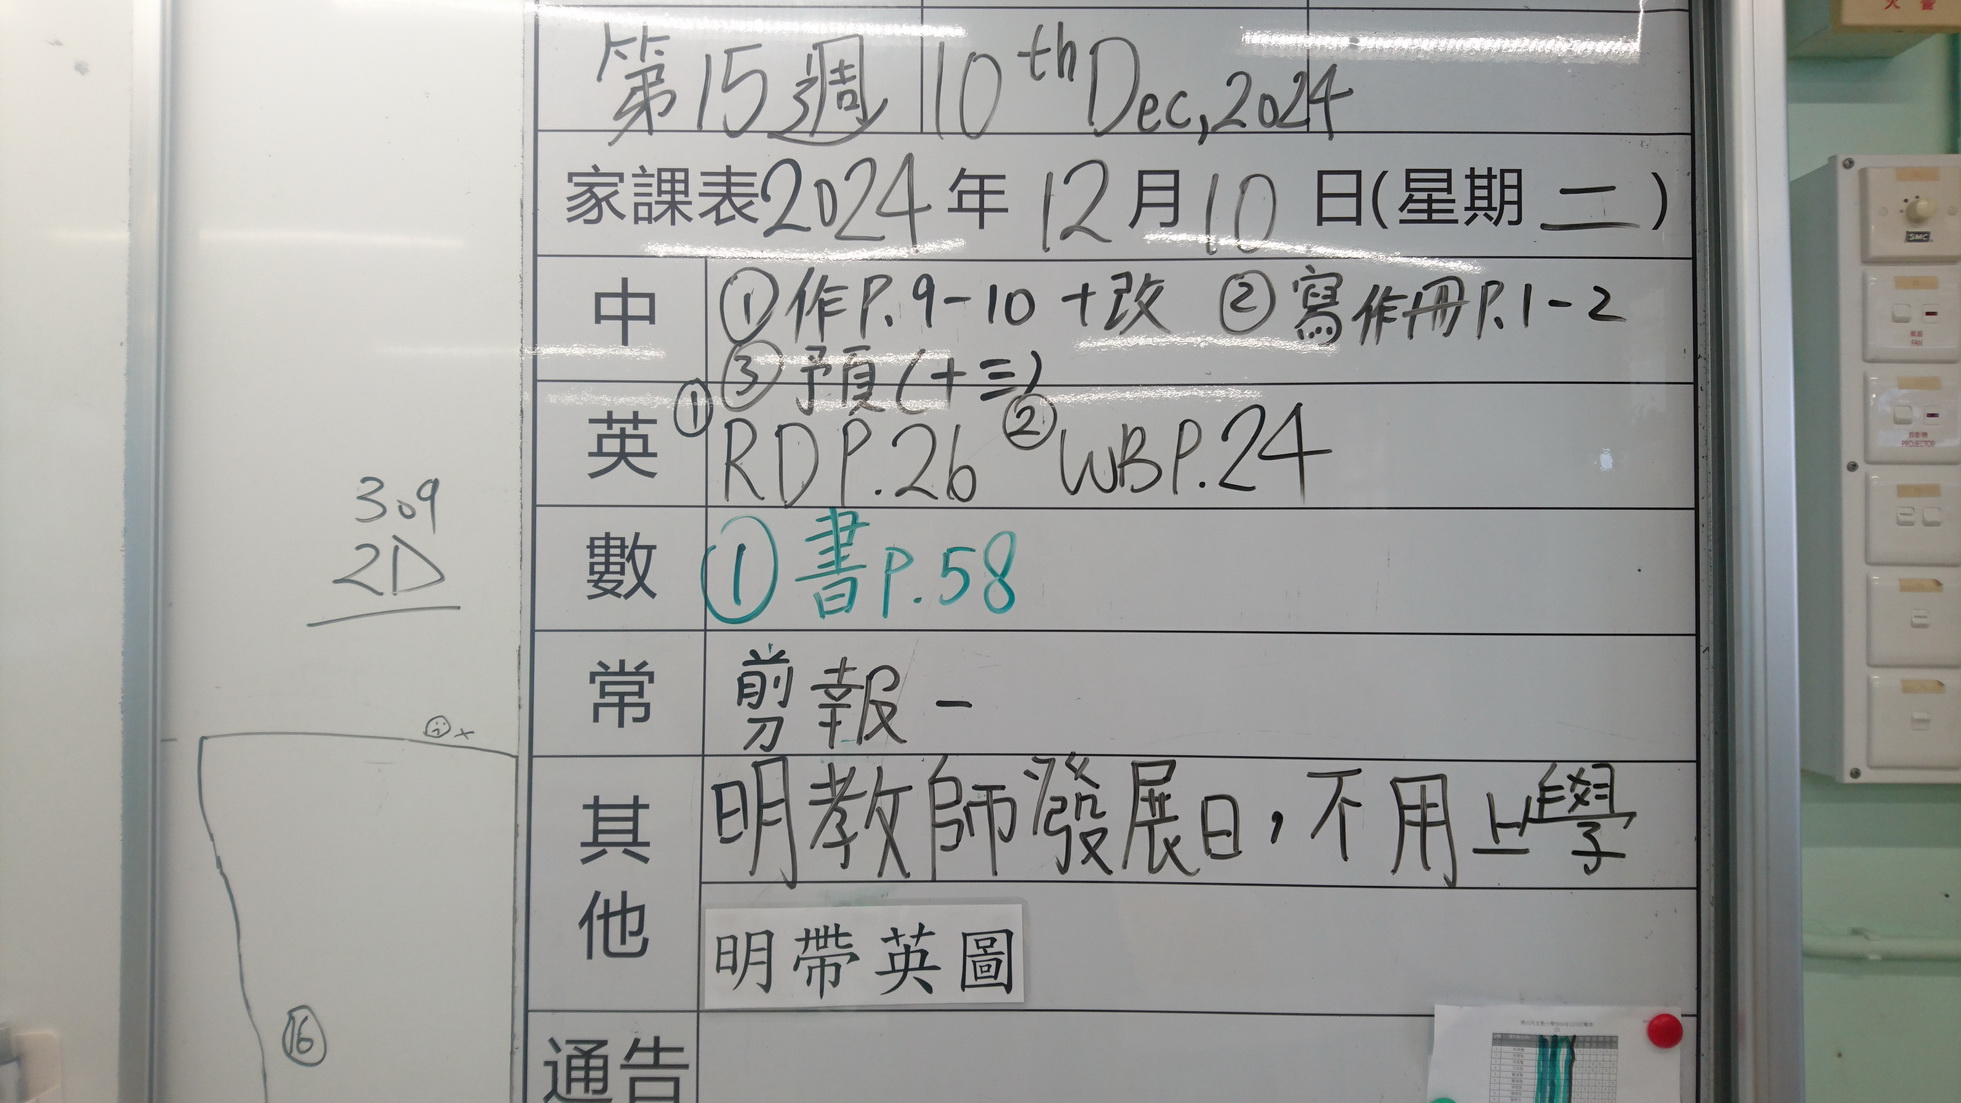 第15週 10th Dec, 2024
家課表 2024 年 12 月 10 日(星期 二 )
中 ① 作P.9-10 +改 ② 寫作冊P.1-2
③ 預(十三)
英 ① RD P.26 ② WB P.24
數 ① 書P.58
常 剪報一
其他 明教師發展日，不用上學
明帶英圖
通告
309
2D
16
SMC
FAN
PROJECTOR